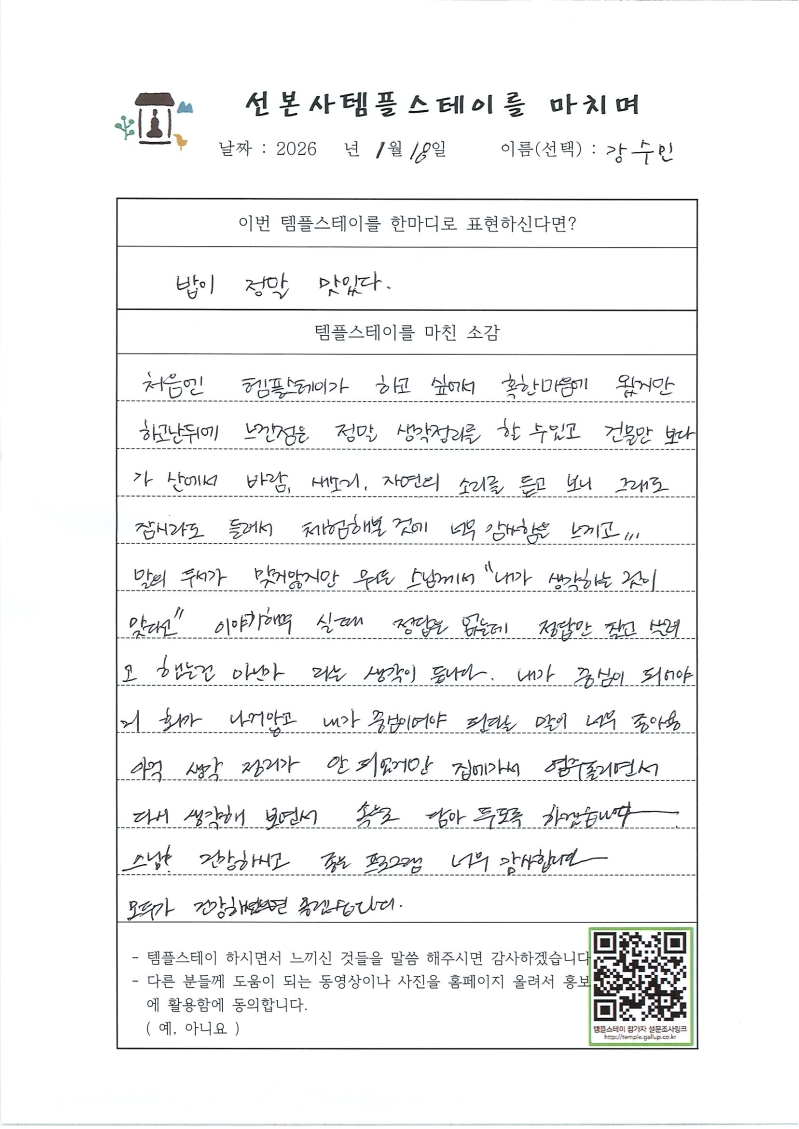 선본사템플스테이를 마치며
날짜 : 2026 년 1월 18일 이름(선택) : 강수민
이번 템플스테이를 한마디로 표현하신다면?
밥이 정말 맛있다.
템플스테이를 마친 소감
처음엔 템플스테이가 하고 싶에서 혹한마음에 왔지만
하고난뒤에 느낀점은 정말 생각정리를 할 수있고 건물만 보다
가 산에서 바람, 새소리, 자연의 소리를 듣고 보니 그래도
잠시라도 들려서 체험해본 것에 너무 감사함은 느끼고,,,
말의 두서가 맞지않지만 우리는 스님께서 "내가 생각하는 것이
맞다고" 이야기해주 실때 정답은 없는데 정답만 찾고 살려
고 했는건 아닌가 라는 생각이 듭니다. 내가 중심이 되어야
지 화가 나지않고 내가 중심이어야 된다는 말이 너무 좋아용
아직 생각 정리가 안 되었지만 집에가서
다시 생각해 보면서 속으로 담아 두도록 하겠습니다
스님! 건강하시고 좋은 프로그램 너무 감사합니다
모두가 좋겠습니다.
- 템플스테이 하시면서 느끼신 것들을 말씀 해주시면 감사하겠습니다
- 다른 분들께 도움이 되는 동영상이나 사진을 홈페이지 올려서 홍보
에 활용함에 동의합니다.
( 예, 아니요 )
템플스테이 참가자 설문조사링크
http://temple.gallup.co.kr